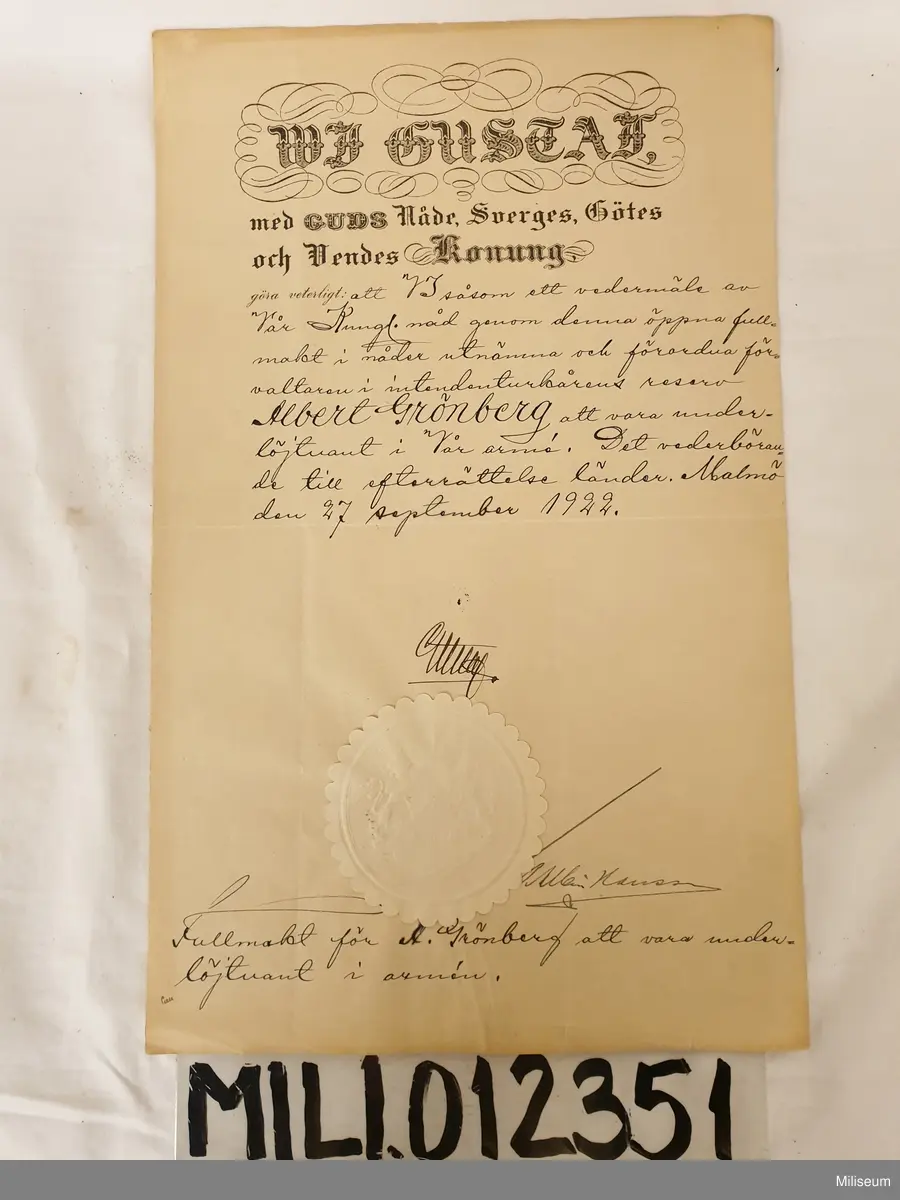 WJ GUSTAF,
med GUDS Nåde, Sverges, Götes
och Vendes Konung
göra veterligt: att VJ såsom ett vedermäle av
Vår Kungl. nåd genom denna öppna full-
makt i nåder utnämna och förordna för-
valtaren i intendenturkårens reserv
Albert Grönberg att vara under-
löjtnant i Vår armé. Det vederböran-
de till efterrättelse länder. Malmö
den 27 september 1922.
Gustaf
Albin Hansson
Fullmakt för A. Grönberg att vara under-
löjtnant i armén.
MILI.012351
Miliseum